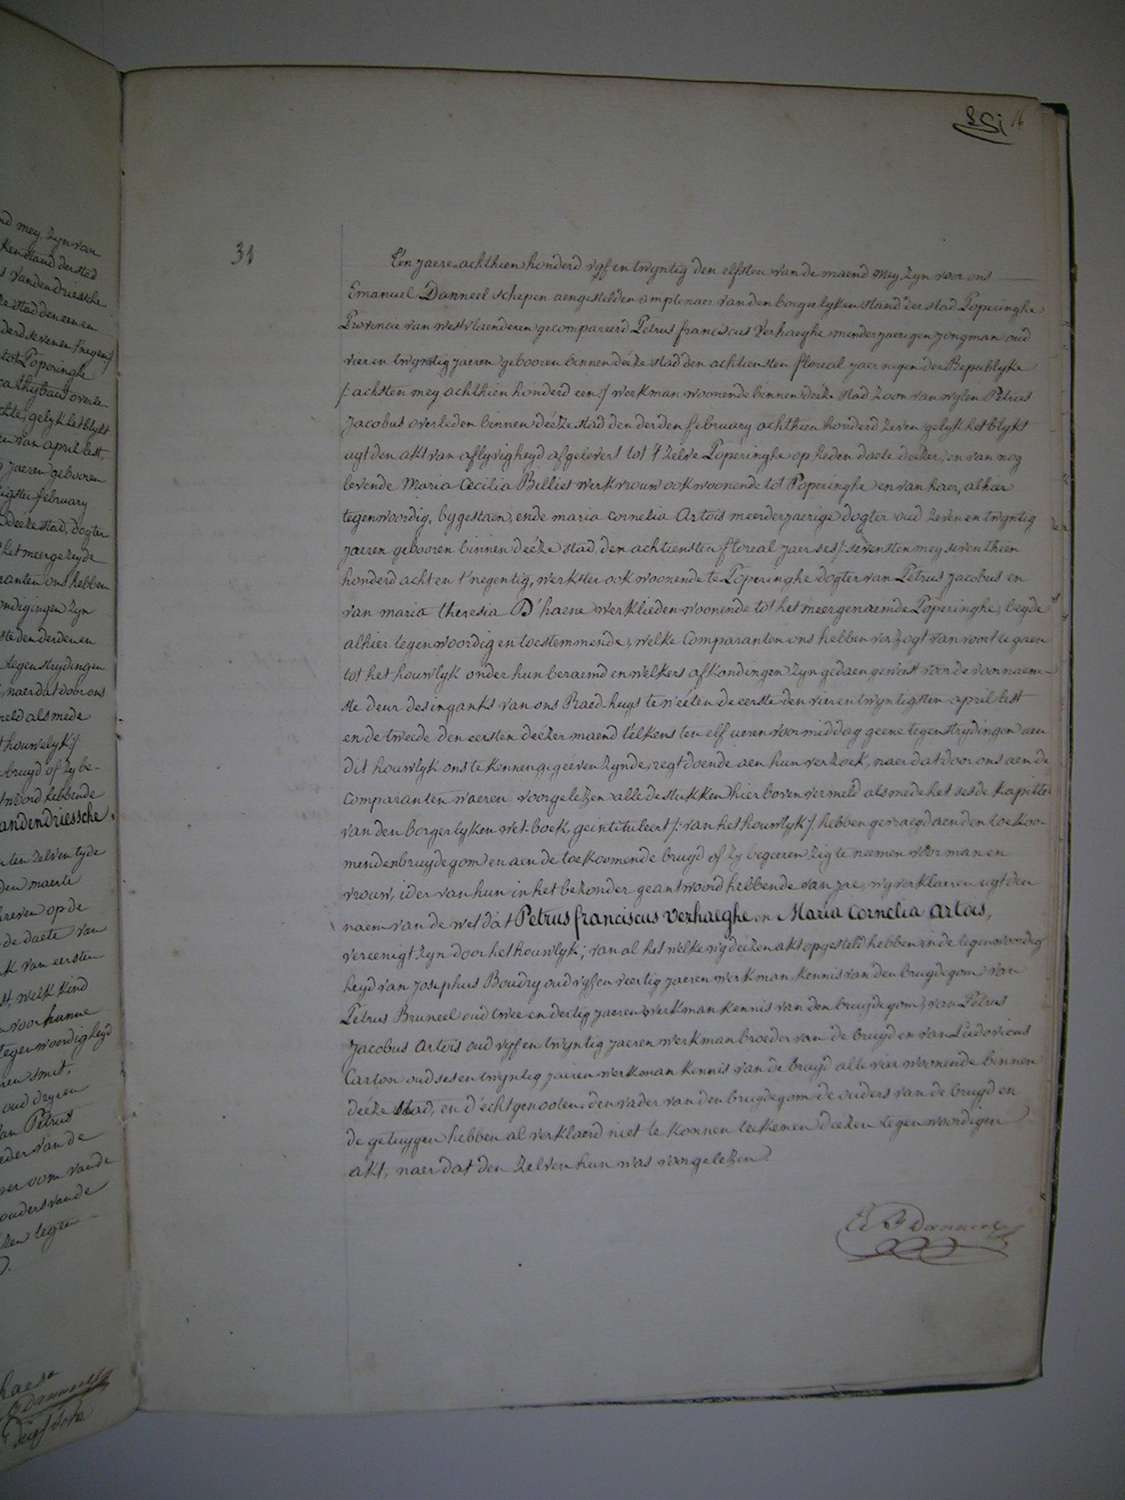 nd mey zyn van
ken stand der stad
s vanden Driessche
ze stad den een en
derd seven en /: negen :/
tot Poperinghe
gelyk het blykt
en van april lest,
jaeren gebooren
tigste february
deéze stad, dogter
het meergezeyde
ranten ons hebben
ondigingen zyn
ste den derden en
tegenstrydingen
, naer dat door ons
meld als mede
t houwelyk :/
bruyd of zy be-
twoord hebbende
anden Driessche.
ten zelven tyde
den maerte
hreven op de
de daete van
k van eersten
st, welk kind
voor hunne
tegenwoordigheyd
ren smit,
oud dryen
van Petrus
eder van de
er oom van de
ouders van de
zen tegen
31
16
Een jaere achthien honderd vyf en twyntig den elfsten van de maend mey zyn voor ons
Emanuel Danneel schepen aengestelden amptenaer van den borgerlyken stand der stad Poperinghe
Provincie van westvlaenderen gecompareerd Petrus franciscus Verhaeghe minderjaerigen jongman oud
vier en twyntig jaeren gebooren binnen deéze stad den achtiensten floreal jaer negen der Republyke
/: achsten mey achthien honderd een :/ werkman woonende binnen deéze stad zoon van wylen Petrus
Jacobus overleden binnen deéze stad den derden february achthien honderd zeven gelyk het blykt
uyt den akt van aflyvigheyd afgelevert tot 't zelve Poperinghe op heden daete deézer, en van nog
levende Maria Cecilia Billiet werkvrouw ook woonende tot Poperinghe en van haer, alhier
tegenwoordig, bygestaen, ende maria cornelia Artois meerderjaerige dogter oud zeven en twyntig
jaeren gebooren binnen deéze stad, den achtiensten floreal jaer ses /: sevensten mey seventhien
honderd acht en t'negentig, werkster ook woonende te Poperinghe dogter van Petrus Jacobus en
van maria theresia D'haene werklieden woonende tot het meergenaemde Poperinghe, beyde
alhier tegenwoordig en toestemmende, welke comparanten ons hebben verzogt van voort te gaen
tot het houwlyk onder hun beraemd en welkers afkondingen zyn gedaen geweest voor de voornaem-
ste deur des ingankx van ons Raed-huys te weéten de eerste den vier en twyntigsten april lest
en de tweede den eersten deézer maend telkens ten elf ueren voormiddag geene tegenstrydingen aen
dit houwlyk ons te kennen gegeeven zynde, regtdoende aen hun verzoek, naer dat door ons aen de
comparanten waeren voorgelezen alle de stukken hier boven vermeld als mede het sesde kapittel
van den borgerlyken wet-boek, geintituleert /: van het houwlyk :/ hebben gevraegd aen den toekoo-
menden bruydegom en aen de toekoomende bruyd of zy begeeren zig te neemen voor man en
vrouw, ider van hun in het bezonder geantwoord hebbende van jae, wy verklaeren uyt den
naem van de wet dat Petrus franciscus Verhaeghe en Maria Cornelia Artois,
vereenigt zyn door het houwlyk, van al het welke wy deézen akt opgesteld hebben in de tegenwoordig
heyd van Josephus Boudry oud vyf en veertig jaeren werkman kennis van den bruydegom van
Petrus Bruneel oud twee en dertig jaeren werkman kennis van den bruydegom, van Petrus
Jacobus Artois oud vyf en twyntig jaeren werkman broeder van de bruyd en van Ludovicus
Carton oud ses en twyntig jaeren werkman kennis van de bruyd alle vier woonende binnen
deéze stad, en d'echtgenooten, den vader van den bruydegom de ouders van de bruyd en
de getuygen hebben al verklaerd niet te konnen teekenen deézen tegenwoordigen
akt, naer dat den zelven hun was voorgelezen.
E F Danneel
Danneel